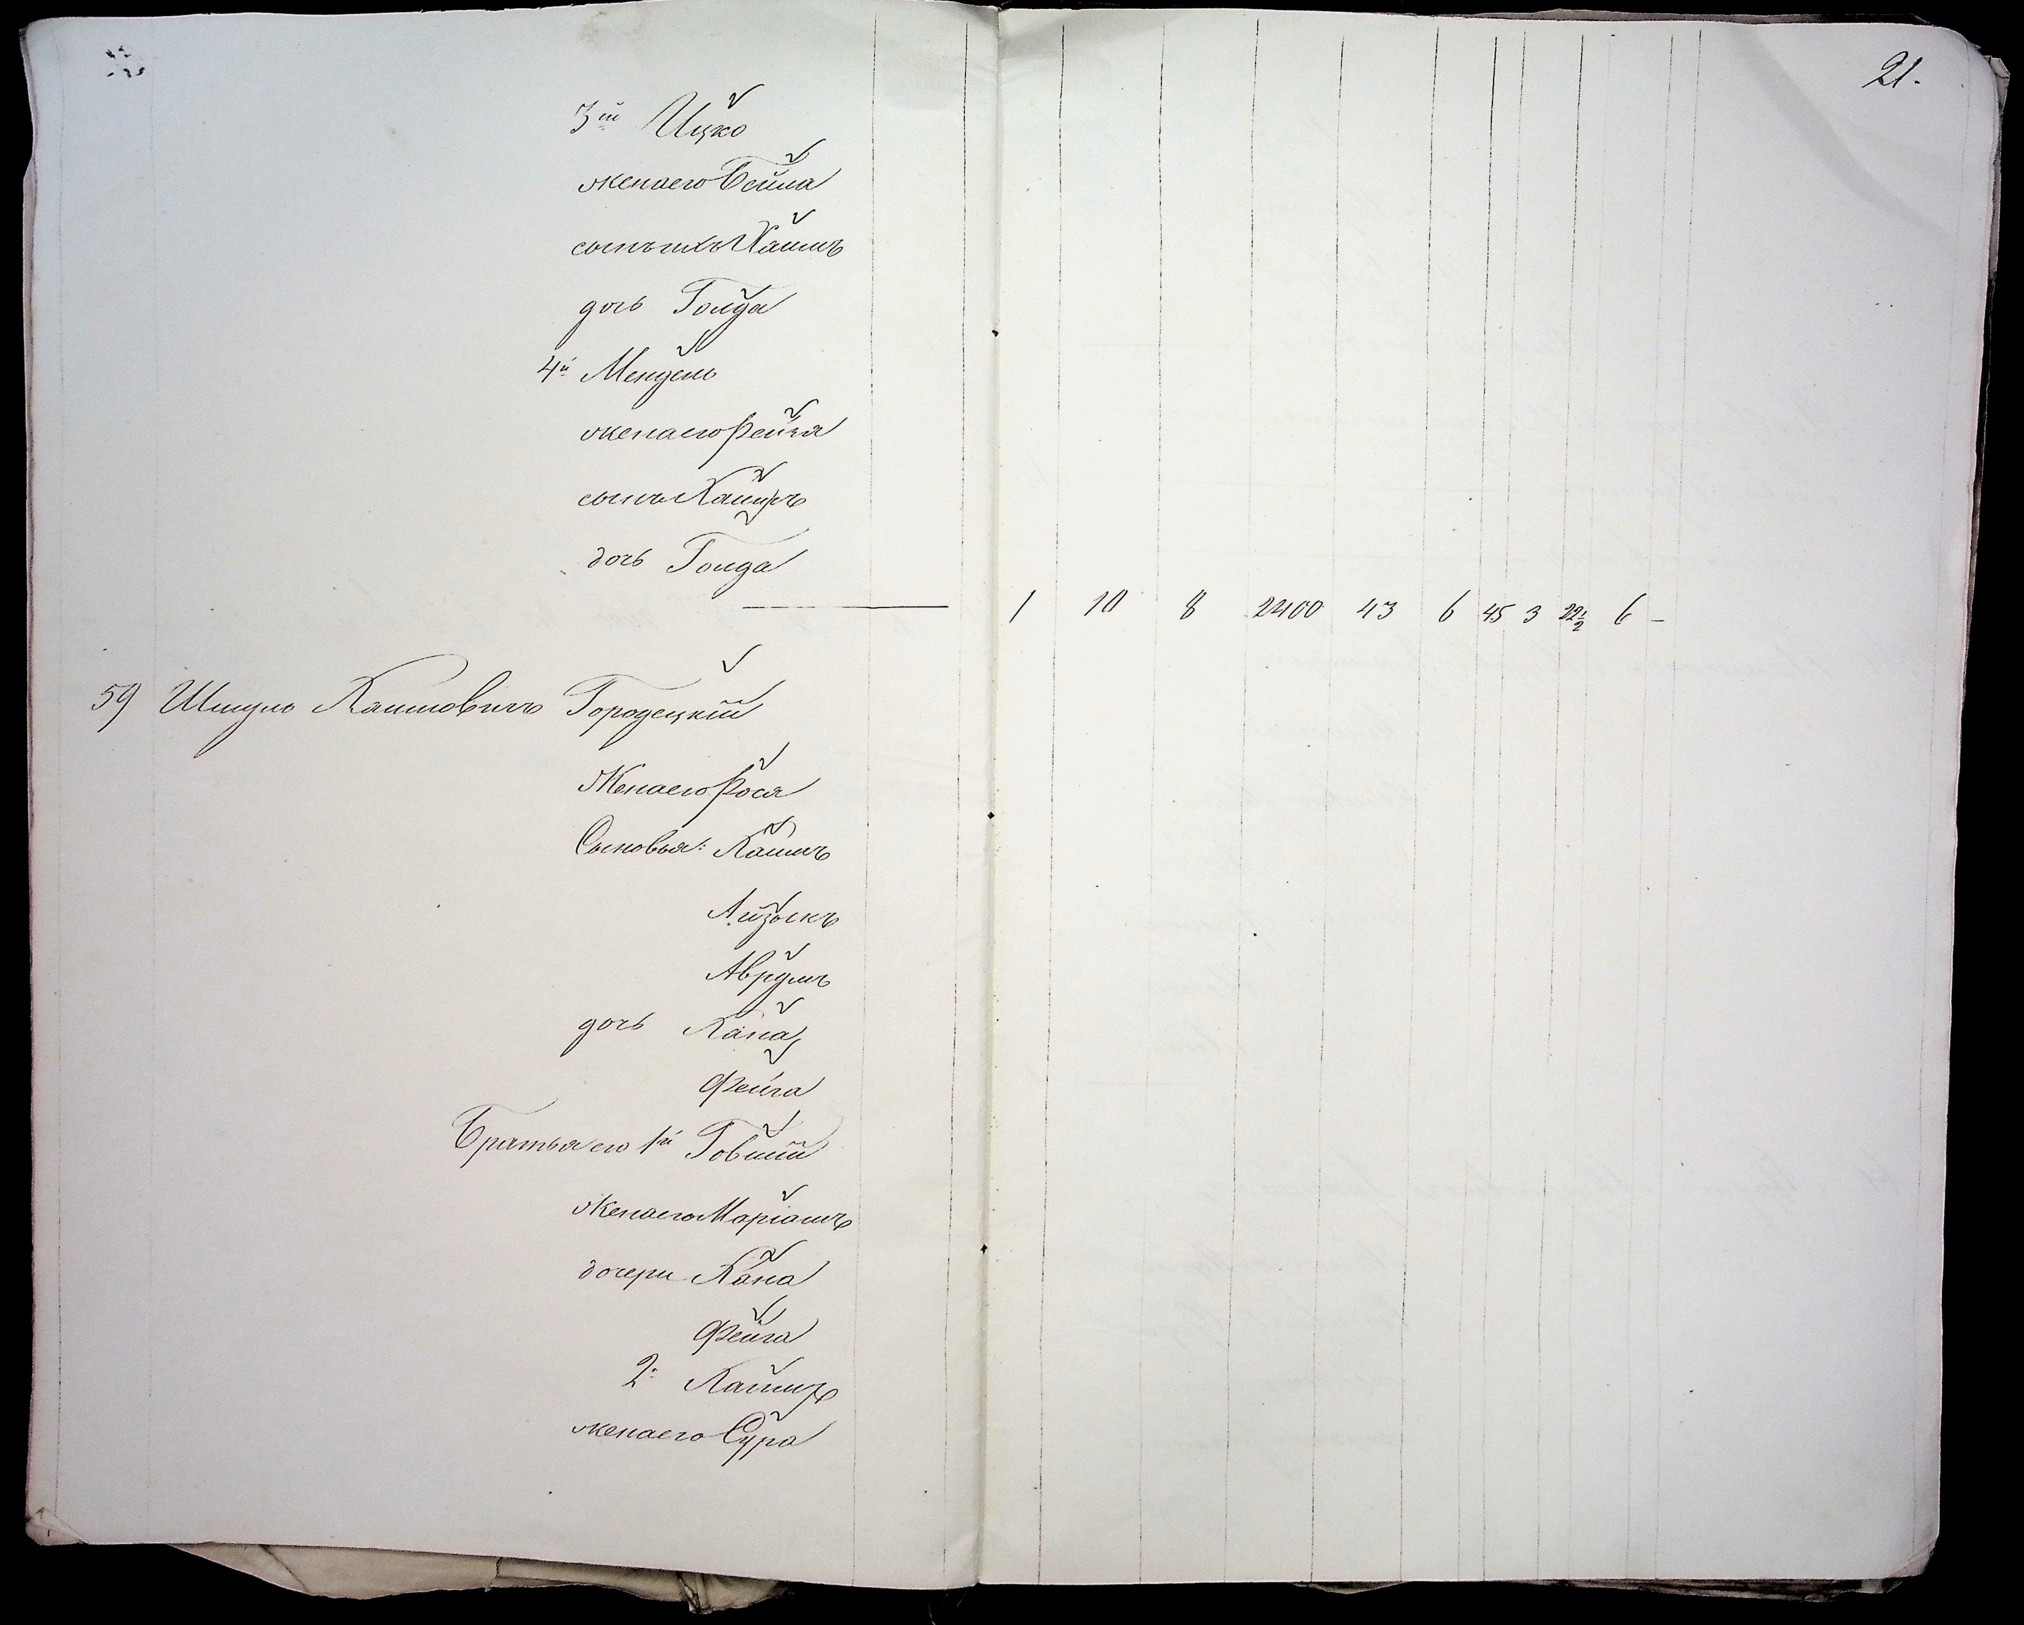 21.
3й Ицко
жена его Бейла
сынъ ихъ Хаимъ
дочь Голда
4й Мендель
жена его Фейга
сынъ Хаимъ
дочь Голда
1 10 8 2400 43 6 45 3 22½ 6 —
59 Шмуль Хаимовичъ Городецкій
Жена его Фося
Сыновья: Хаимъ
Айзыкъ
Аврумъ
дочь Хана
Фейга
Братья его 1й Говшій
жена его Маріамъ
дочери Хана
Фейга
2й Хаимъ
жена его Сура